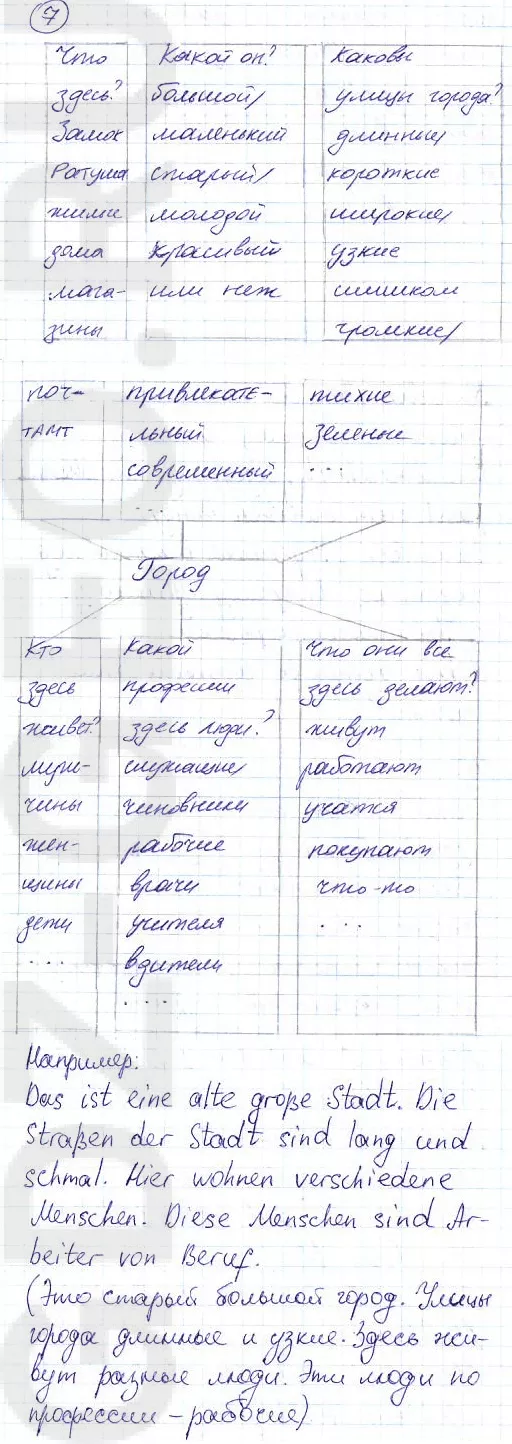 7
Что Какой он? Каковы
здесь? большой/ улицы города?
Замок маленький длинные/
Ратуша старый/ короткие
жилые молодой широкие/
дома красивый узкие
мага- или неж слишком
зины громкие/
поч- привлекате- тихие
тамт льный зеленые
современный ...
...
Город
Кто Какой Что они все
здесь профессии здесь делают?
живет? здесь люди? живут
муж- служащие/ работают
чины чиновники учатся
жен- рабочие покупают
щины врачи что-то
дети учителя ...
.... вдители
....
Например:
Das ist eine alte große Stadt. Die
Straßen der Stadt sind lang und
schmal. Hier wohnen verschiedene
Menschen. Diese Menschen sind Ar-
beiter von Beruf.
(Это старый большой город. Улицы
города длинные и узкие. Здесь жи-
вут разные люди. Эти люди по
профессии – рабочие)